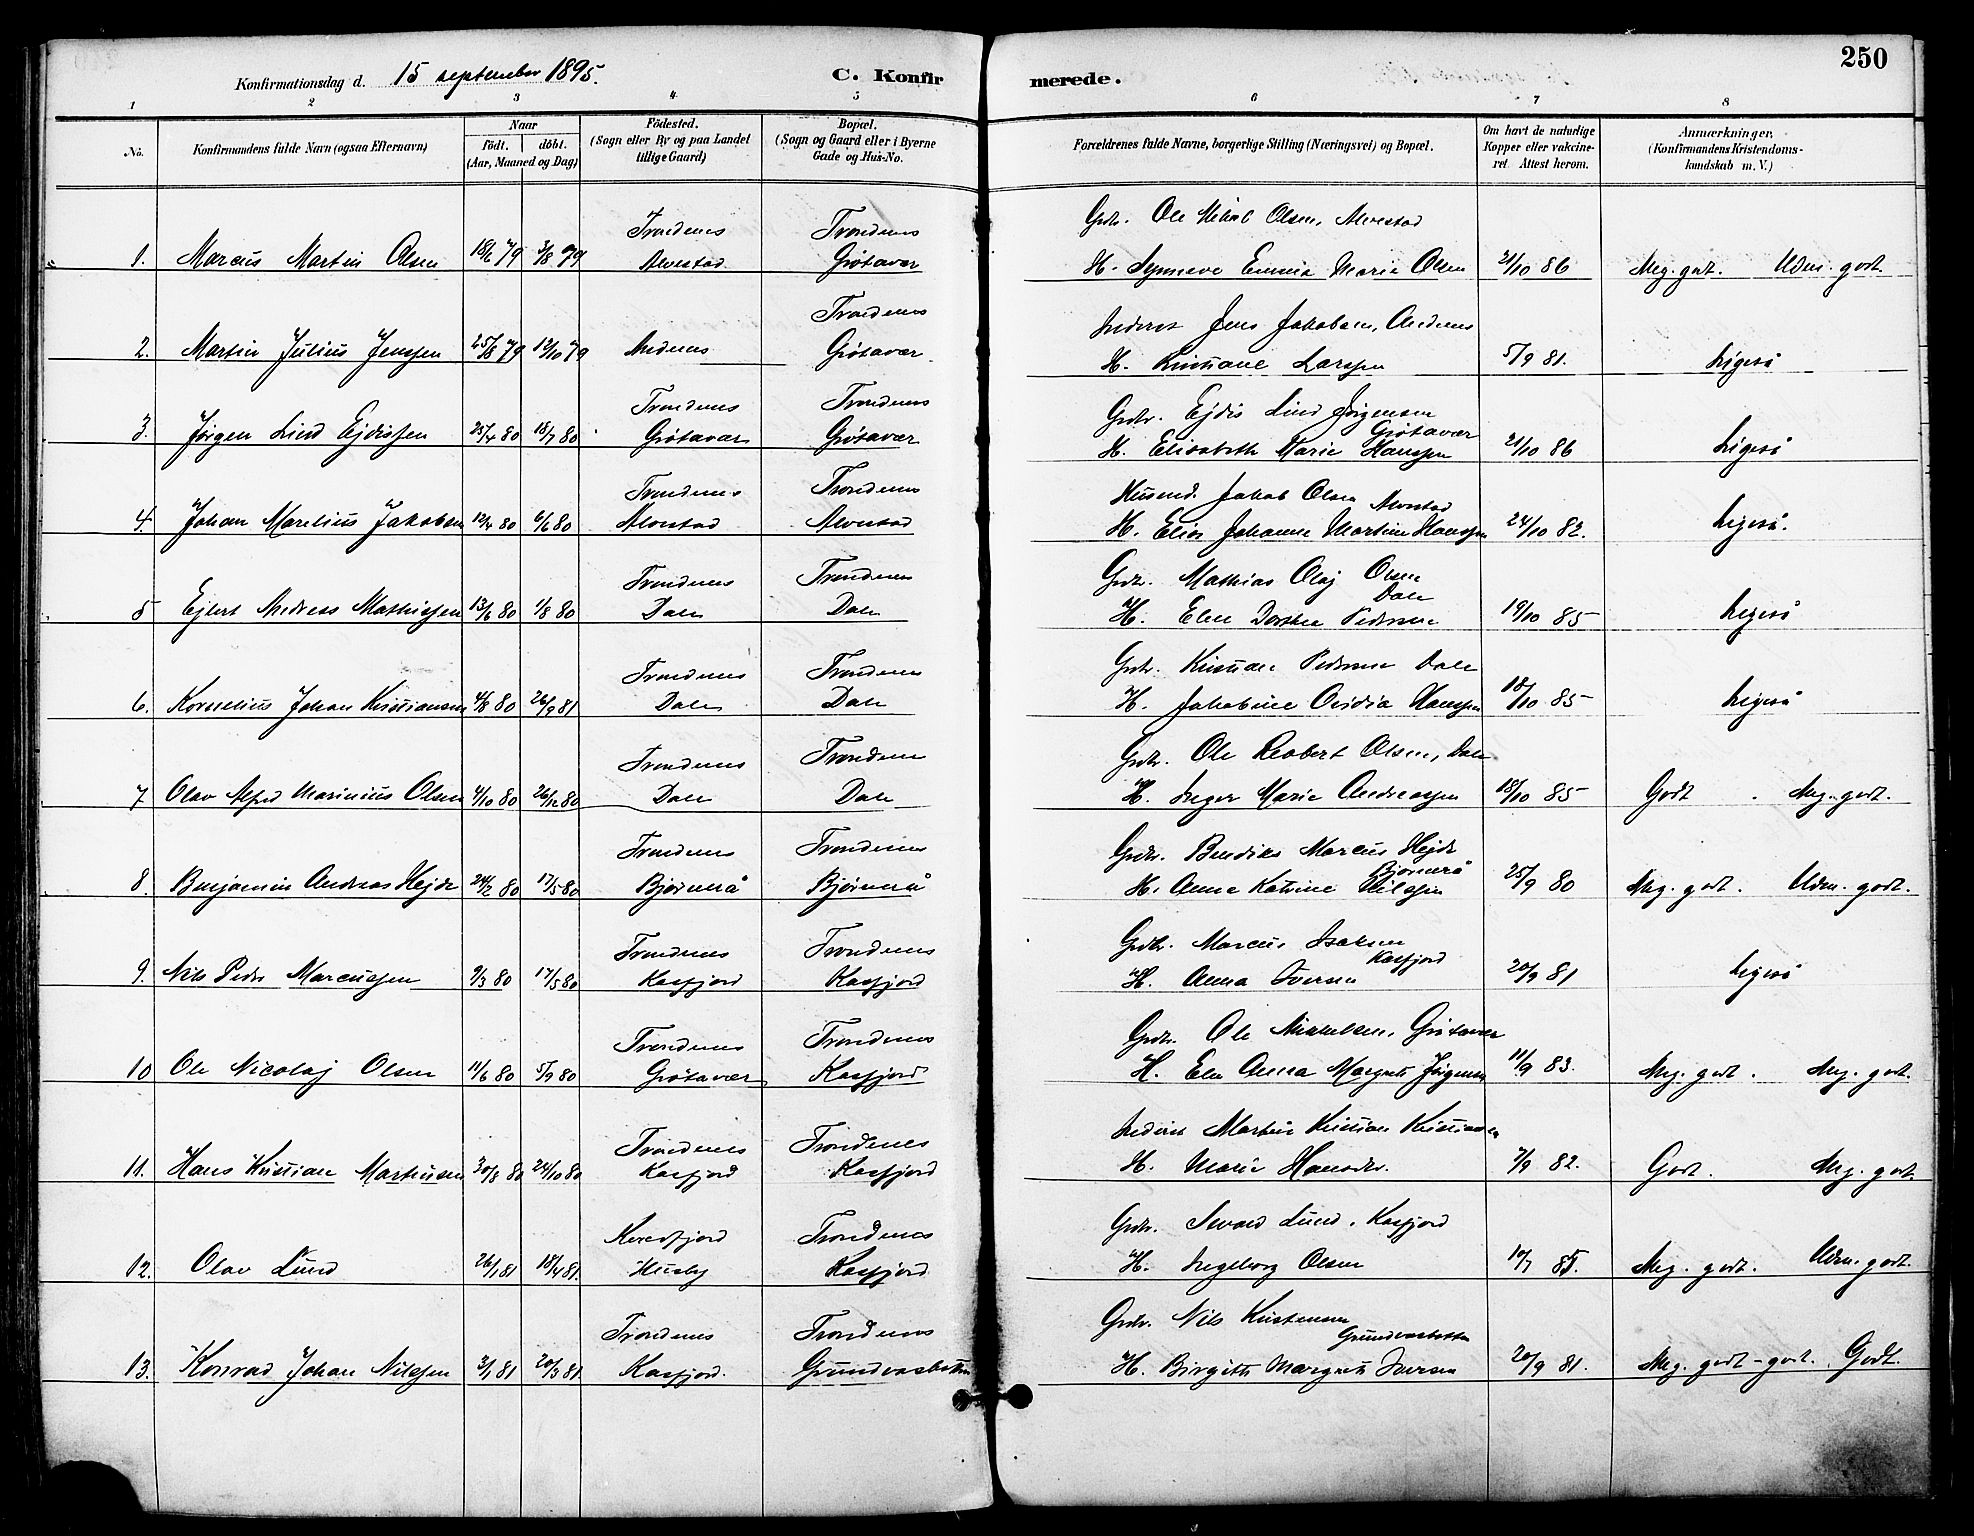 250
Konfirmationsdag d. 15 september 1895. C. Konfirmerede.
1 2 3 4 5 6 7 8
No. Konfirmandens fulde Navn (ogsaa Efternavn) Naar Födt. döbt. (Aar, Maaned og Dag) Födested. (Sogn eller By og paa Landet tillige Gaard) Bopæl. (Sogn og Gaard eller i Byerne Gade og Hus-No. Forældrenes fulde Navne, borgerlige Stilling (Næringsvei) og Bopæl. Om havt de naturlige Kopper eller vakcineret. Attest herom. Anmærkninger. (Konfirmandens Kristendomskundskab m. V.)
Trondenes Trondenes Grdr. Ole Mikal Olsen, Alvestad
1. Marcus Martin Olsen 18/6 79 3/8 79 Alvestad Grøtavær H. Synneve Emmia Marie Olsen 21/10 86 Meg. godt. Udm. godt.
Trondenes Inderst Jens Jakobsen, Andenes
2. Martin Julius Jenssen 25/8 79 12/10 79 Andenes Grøtavær. H. Kristiane Larssen 5/9 81. Ligeså
Trondenes Trondenes Grdr. Ejdis Lind Jørgensen Grøtavær
3. Jørgen Lind Ejdissen 25/4 80 18/7 80 Grøtavær Grøtavær H. Elisabeth Marie Hanssen 21/10 86 Ligeså
Trondenes Trondenes Husmd. Jakob Olsen Alvestad
4. Johan Marelius Jakobsen 12/4 80 6/6 80 Alvestad Alvestad H. Elias Johanna Martine Hanssen 24/10 82. Ligeså.
Trondenes Trondenes Grdr. Mathias Olaj Olsen Dale
5 Ejlert Andreas Mathissen 13/6 80 1/8 80 Dale Dale H. Elen Dorthea Pedersen 19/10 85 Ligeså
Trondenes Trondenes Grdr. Kristian Pedersen Dale
6. Kornelius Johan Kristiansen 4/8 80 26/9 81 Dale Dale H. Jakobine Ovidia Hanssen 18/10 85 Ligeså
Trondenes Trondenes Grdr. Ole Reobert Olsen, Dale
7 Olav Alfred Marinius Olsen 4/10 80 26/12 80 Dale Dale H. Inger Marie Andreassen 18/10 85 Godt. Meg. godt.
Trondenes Trondenes Grdr. Bendiks Marcus Hejde Bjørnerå
8. Benjamin Andreas Hejde 24/2 80 17/5 80 Bjørnerå Bjørnerå H. Anna Katrine Nilssen 25/9 80 Meg. godt. Udm. godt.
Trondenes Trondenes Grdr. Marcus Isaksen Kasfjord
9. Nils Peder Marcussen 9/3 80 17/5 80 Kasfjord Kasfjord H. Anna Iversen 20/9 81 Ligeså
Trondenes Trondenes Grdr. Ole Mikkelsen, Grøtavær
10 Ole Nicolaj Olsen 11/6 80 5/9 80 Grøtavær Kasfjord H. Elen Anna Margrete Jørgensen 11/9 83. Meg. godt. Meg. godt.
Trondenes Trondenes Inderst Martin Kristian Kristiansen
11. Hans Kristian Martinsen 30/8 80 24/10 80 Kasfjord Kasfjord H. Marie Hansdtr. 7/9 82. Godt. Meg. godt.
Kvedfjord Trondenes Grdr. Sivard Lund, Kasfjord
12. Olav Lund 26/1 81 18/4 81. Husby Kasfjord H. Ingeborg Olsen 10/7 85. Meg. godt. Udm. godt.
Trondenes Trondenes Grdr. Nils Kristensen Grundvasbotten
13. Konrad Johan Nilssen 3/1 81 20/3 81 Kasfjord. Grundvasbotten H. Birgitte Margrete Iversen 20/9 81. Meg. godt - godt. Godt.